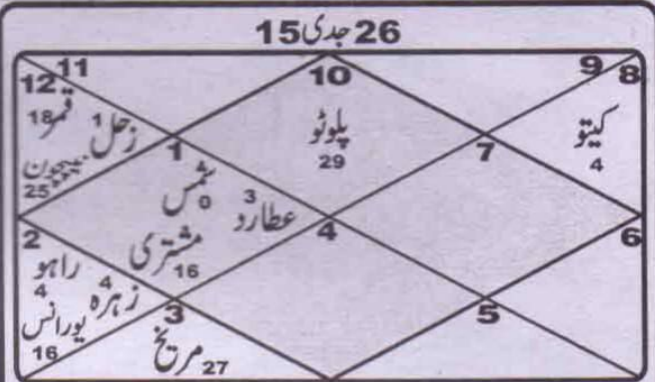 26 جدی 15
8 9 10 11 12
قمر 18
زحل 1
نیپچون 25
1
پلوٹو
29
7
کیتو
4
شمس 4 0
عطارد 3
مشتری 4 16
2 4 6
راہو
4
زہرہ 4
یورانس
16
3
مریخ 27
5